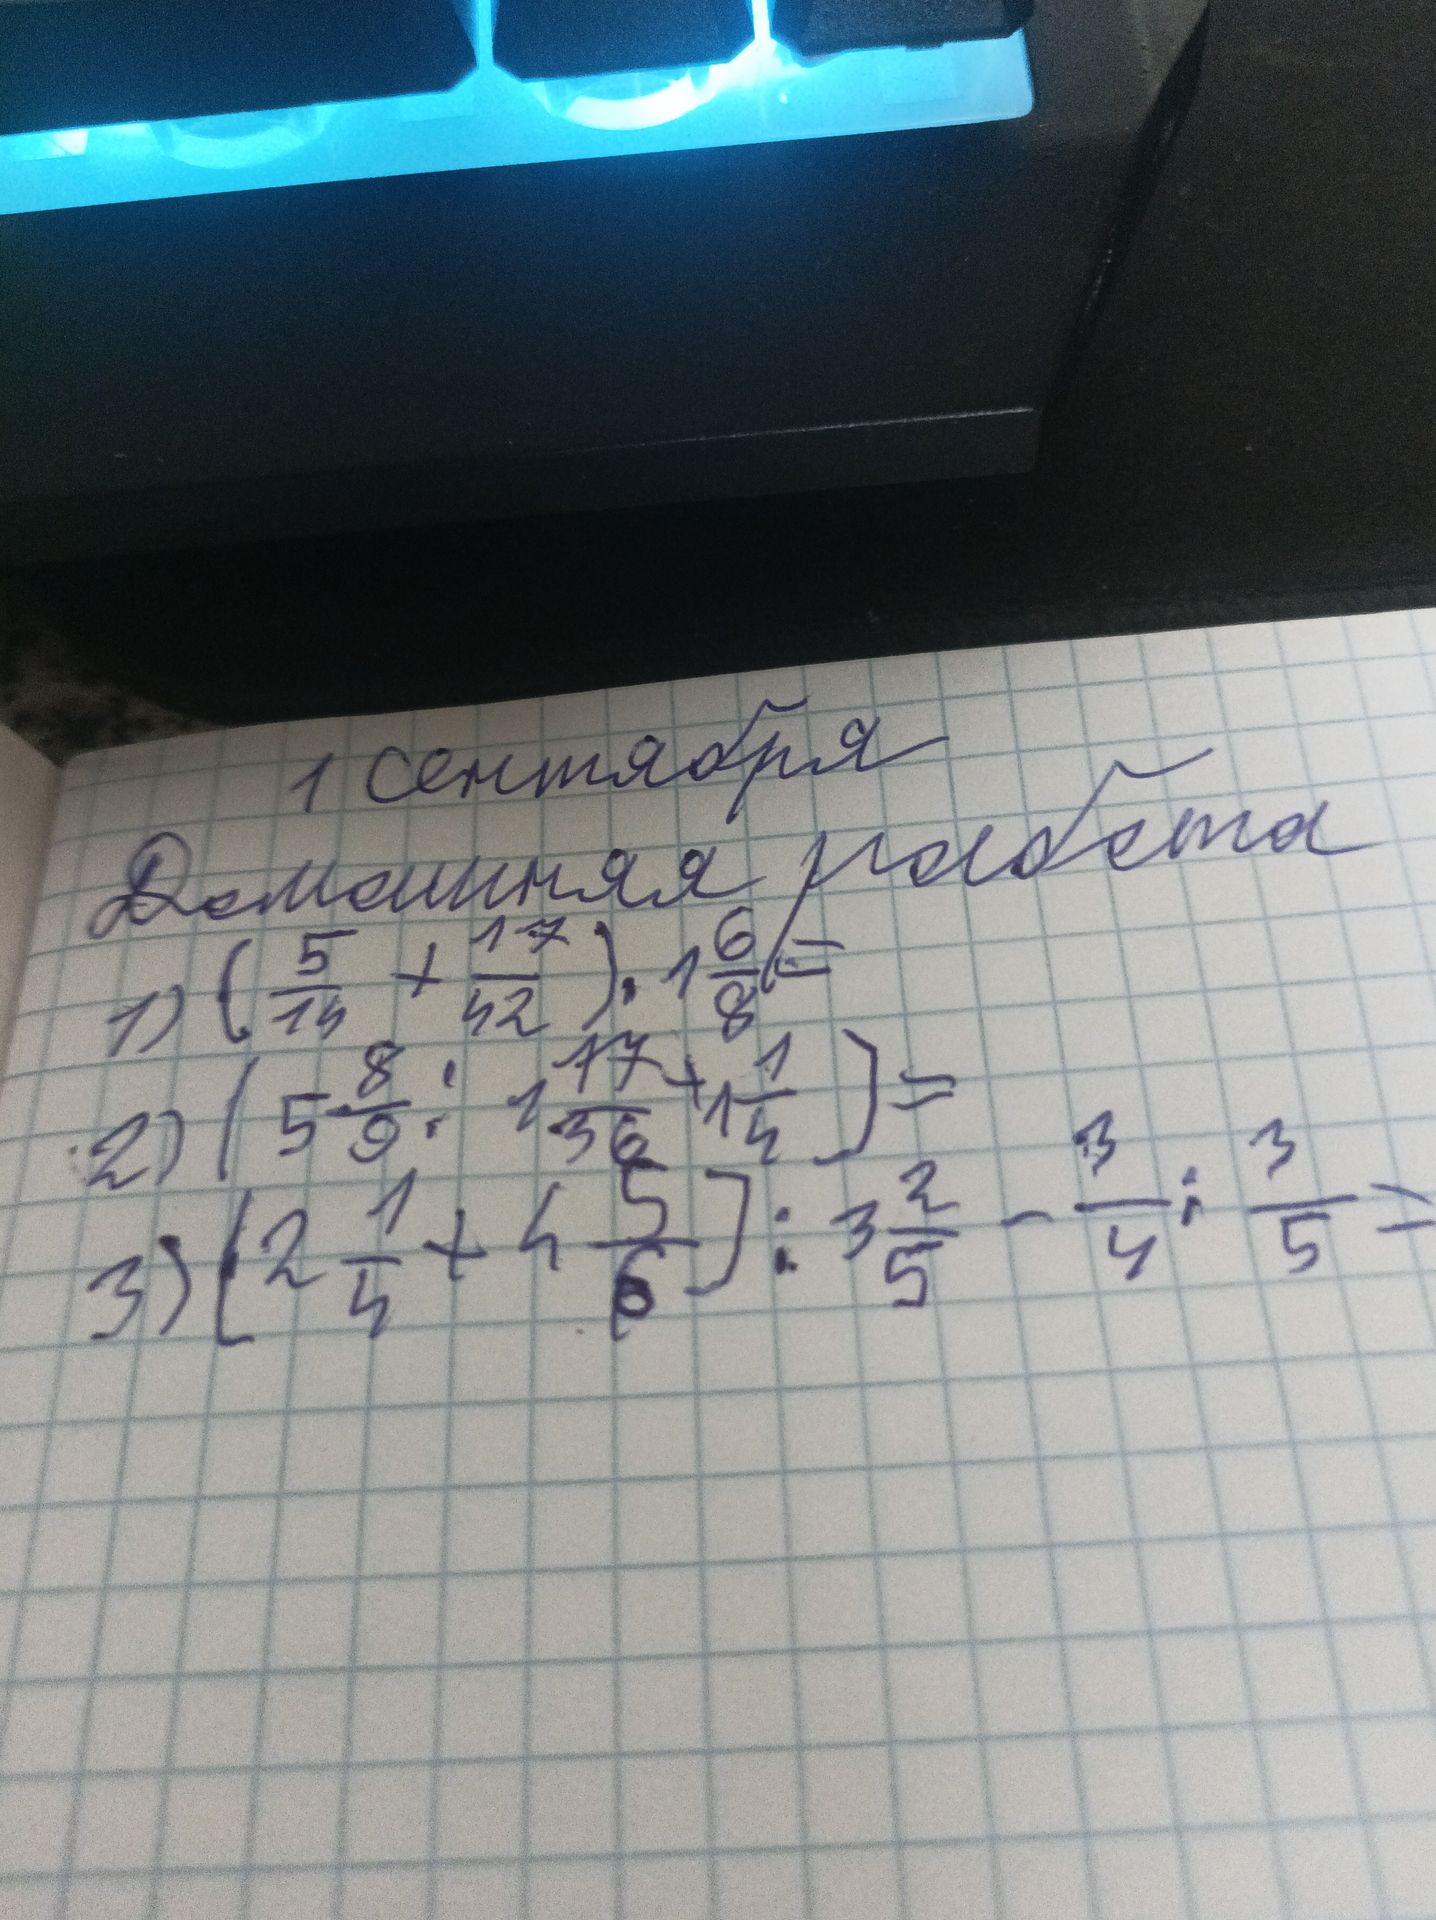 1 Сентября
Домашняя работа
1) (5/14 + 17/42) . 1 6/8 =
2) (5 8/9 : 1 17/36 + 1 1/4) =
3) (2 1/4 + 4 5/6) : 3 2/5 - 3/4 : 3/5 =